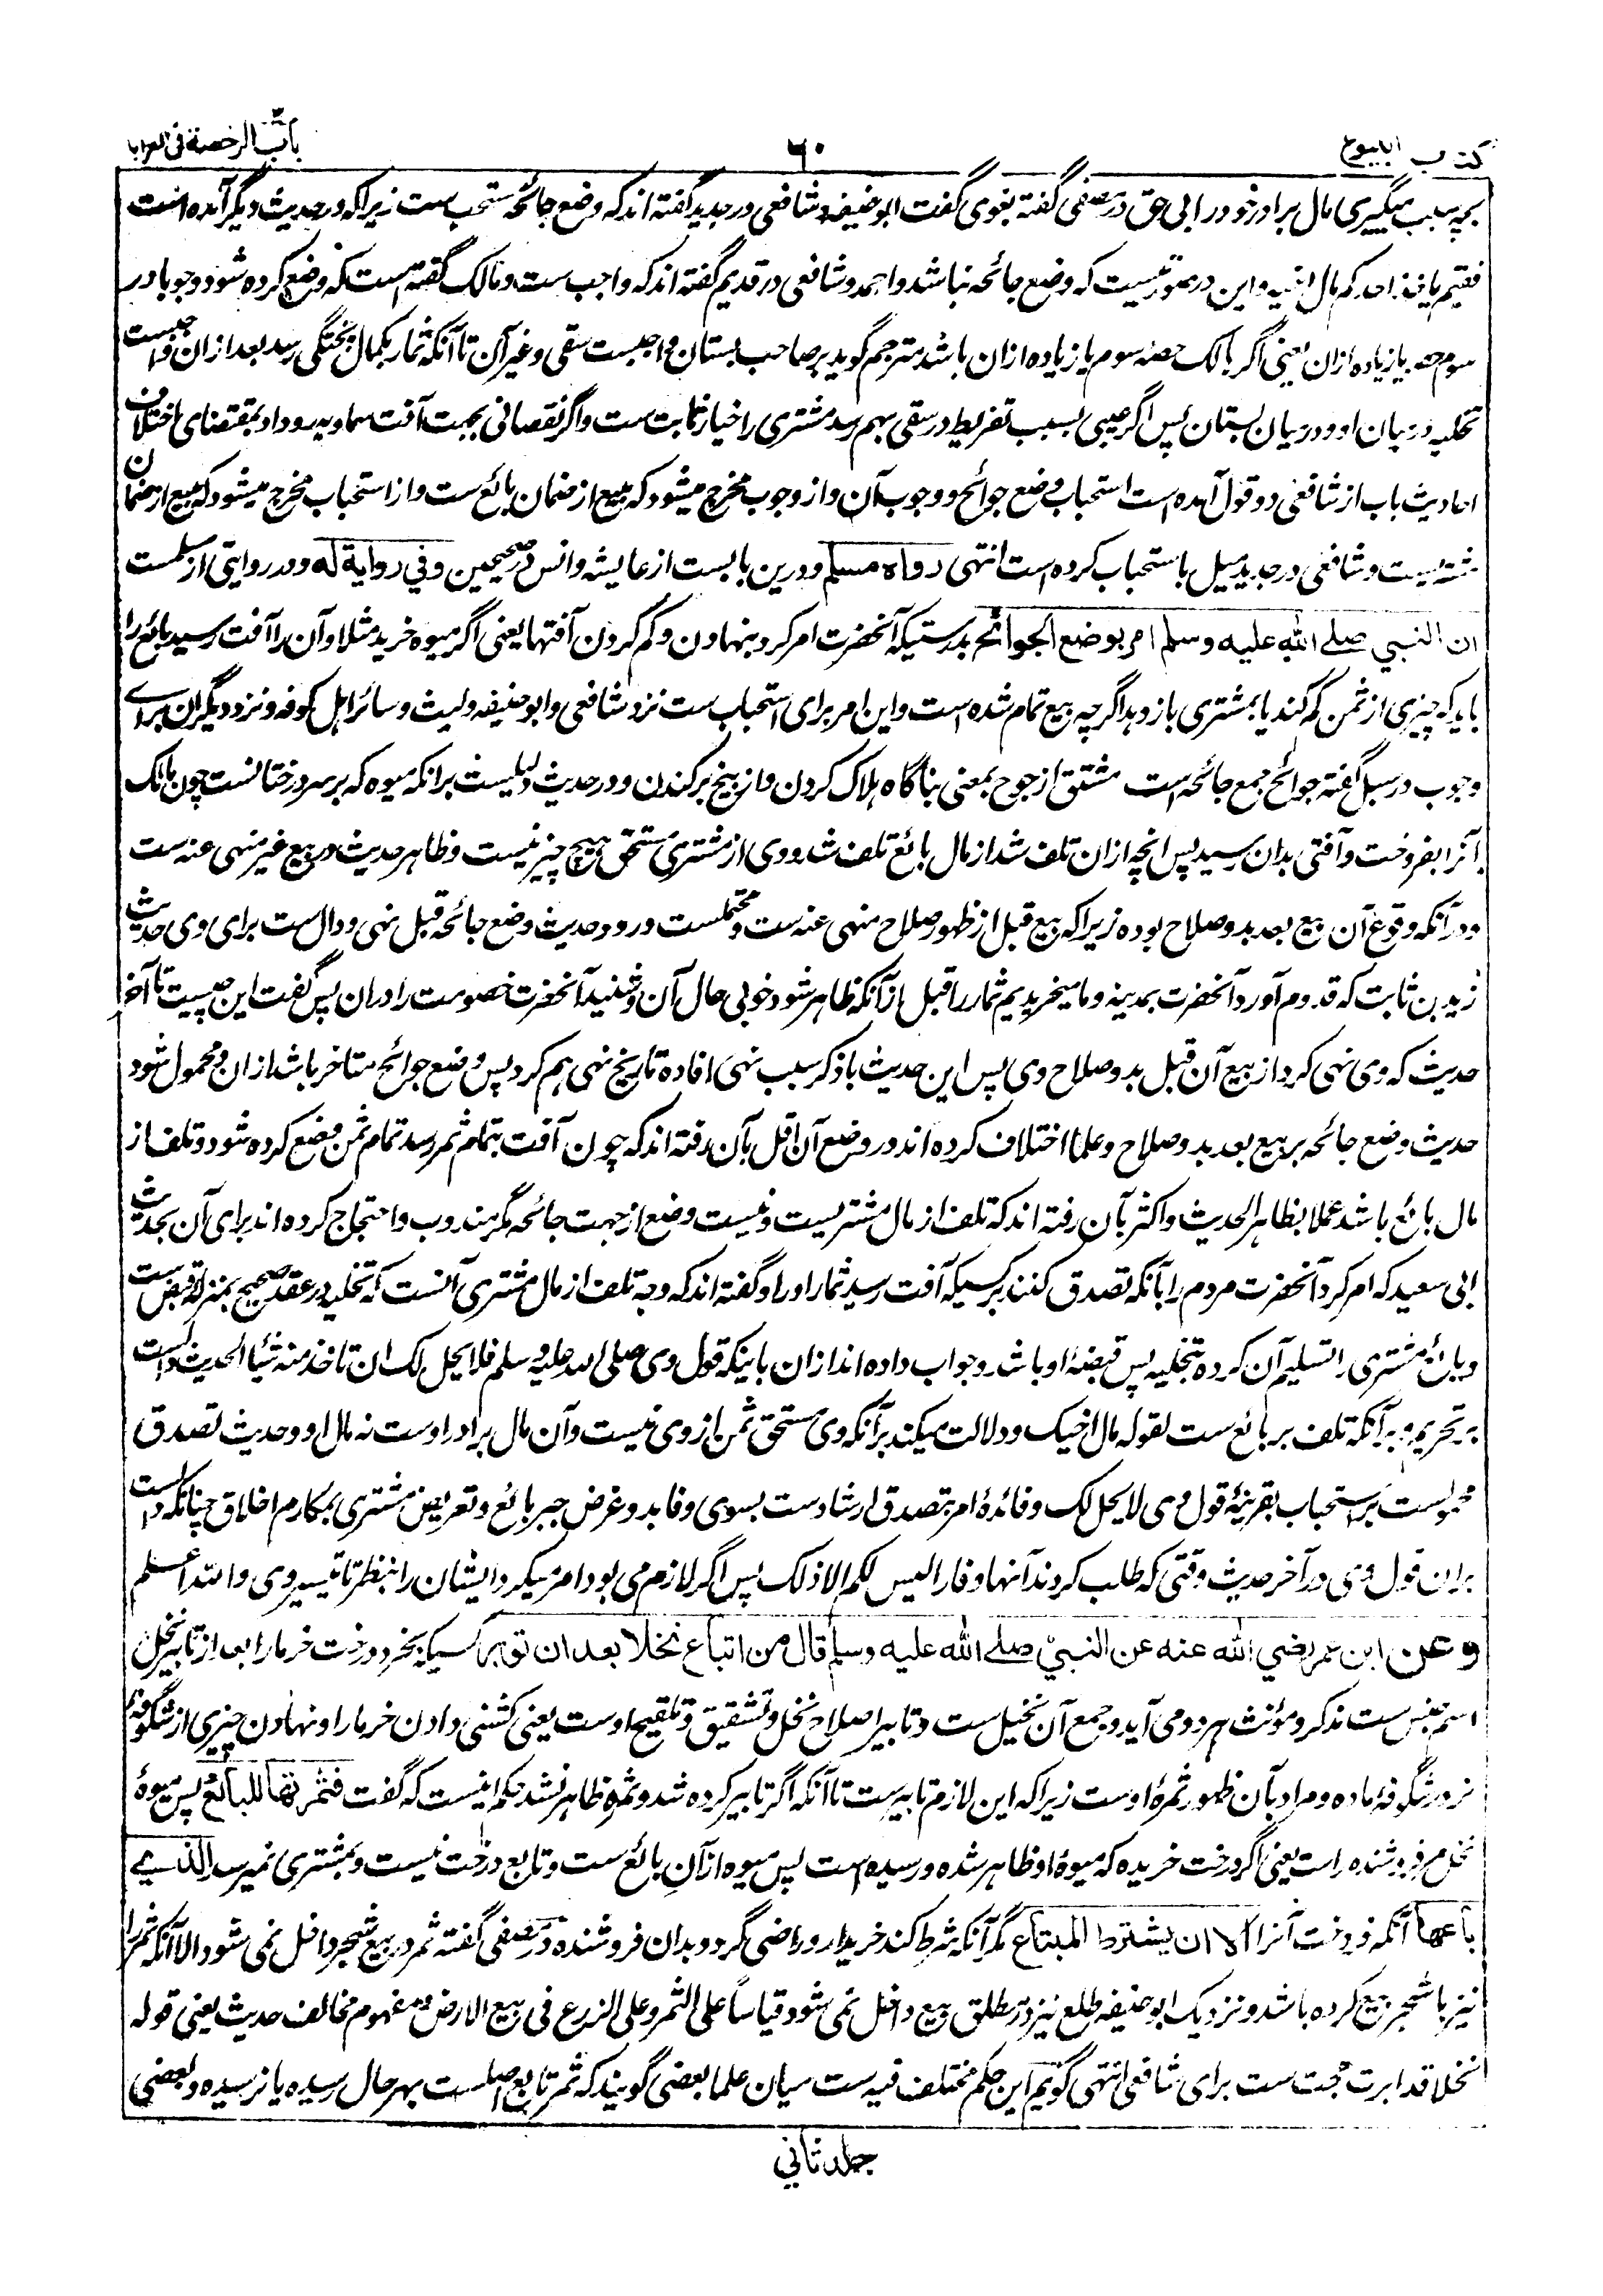 کتاب البیوع
۶۰
باب الرخصة فی العرایا
بچه سبب میگیری مال برادر خود را بی حق در مصفی گفته بغوی گفت ابو حنیفه و شافعی در جدید گفته اند که وضع جائحه مستحب ست زیراکه در حدیث دیگر آمده است
فبم یاخذ احدکم مال اخیه و این در صورتیست که وضع جائحه نباشد و احمد و شافعی در قدیم گفته اند که واجب ست و مالک گفته است که وضع کرده شود وجوبا در
سوم حصه یا زیاده ازان یعنی اگر هالک حصه سوم یا زیاده ازان باشد مترجم گوید بر صاحب بستان واجبست سقی و غیر آن تا آنکه ثمار بکمال پختگی رسد بعد ازان واجبست
تخلیه در میان او و در میان بستان پس اگر عیبی بسبب تفریط در سقی بهم رسد مشتری را خیار ثابت ست و اگر نقصانی بجهت آفت سماویه رو داد بمقتضای اختلاف
احادیث باب از شافعی دو قول آمده است استحباب وضع جوائح و وجوب آن و از وجوب مخرج میشود که مبیع از ضمان بائع ست و از استحباب مخرج میشود که مبیع از ضمان
مشتریست و شافعی در جدید میل باستحباب کرده است انتهی رواه مسلم و درین بابست از عایشه و انس در صحیحین وفي رواية له و در روایتی از مسلمست
ان النبي صلے الله عليه وسلم امر بوضع الجوائح بدرستیکه آنحضرت امر کرد بنهادن و کم کردن آفتها یعنی اگر میوه خرید مثلا و آن را آفت رسید بائع را
باید که چیزی از ثمن کم کند یا بمشتری باز دهد اگرچه بیع تمام شده است و این امر برای استحباب ست نزد شافعی و ابو حنیفه و لیث و سائر اهل کوفه و نزد دیگران برای
وجوب در سبل گفته جوائح جمع جائحه است مشتق از جوح بمعنی بناگاه هلاک کردن و از بیخ برکندن و در حدیث دلیلیست برانکه میوه که بر سر درختانست چون مالک
آنرا بفروخت و آفتی بدان رسید پس انچه ازان تلف شد از مال بائع تلف شد و وی از مشتری مستحق هیچ چیز نیست و ظاهر حدیث در بیع غیر منهی عنه ست
و در آنکه وقوع آن بیع بعد بدو صلاح بوده زیراکه بیع قبل از ظهور صلاح منهی عنه ست و محتملست ورود حدیث وضع جائحه قبل نهی و دال ست برای وی حدیث
زید بن ثابت که قدوم آورد آنحضرت بمدینه و ما میخریدیم ثمار را قبل ازآنکه ظاهر شود خوبی حال آن و شنید آنحضرت خصومت را دران پس گفت این چیست تا آخر
حدیث که وی نهی کرد از بیع آن قبل بدو صلاح وی پس این حدیث با ذکر سبب نهی افاده تاریخ نهی هم کرد پس وضع جوائح متاخر باشد ازان و محمول شود
حدیث وضع جائحه بر بیع بعد بدو صلاح و علما اختلاف کرده اند در وضع آن اقل بآن رفته اند که چون آفت بتمام ثمر رسد تمام ثمن وضع کرده شود و تلف از
مال بائع باشد عملا بظاهر الحدیث و اکثر بآن رفته اند که تلف از مال مشتریست و نیست وضع از جهت جائحه مگر مندوب و احتجاج کرده اند برای آن بحدیث
ابی سعید که امر کرد آنحضرت مردم را بآنکه تصدق کنند بر کسیکه آفت رسید ثمار او را و گفته اند که وجه تلف از مال مشتری آنست که تخلیه در عقد صحیح بمنزله قبض ست
و بائع مشتری را تسلیم آن کرده بتخلیه پس قبضهٔ او باشد و جواب داده اند ازان باینکه قول وی صلی الله علیه و سلم فلا یحل لک ان تاخذ منه شیئا الحدیث دالست
بر تحریم و برآنکه تلف بر بائع ست لقوله مال اخیک و دلالت میکند برآنکه وی مستحق ثمن از وی نیست و آن مال برادر اوست نه مال او و حدیث تصدق
محمولست بر استحباب بقرینهٔ قول وی لا یحل لک و فائدهٔ امر بتصدق ارشادست بسوی وفا بدو غرض جبر بائع و تعریض مشتری بمکارم اخلاق چنانکه دالست
بران قول وی در آخر حدیث وقتی که طلب کردند آنها وفا را لیس لکم الا ذلک پس اگر لازم می بود امر میکرد ایشان را بنظر تا تیسیر وی و الله اعلم
وعن ابن عمر رضي الله عنه عن النبي صلے الله عليه وسلم قال من ابتاع نخلا بعد ان توبر کسیکه بخرد درخت خرما را بعد از تابیر نخل
اسم جنس ست مذکر و مؤنث هر دو می آید و جمع آن نخیل ست و تابیر اصلاح نخل و تشقیق و تلقیح اوست یعنی کشنی دادن خرما را و نهادن چیزی از شگوفهٔ
نر در شگوفه ماده و مراد بآن ظهور ثمرهٔ اوست زیراکه این لازم تابیرست تا آنکه اگر تابیر کرده شد و ثمره ظاهر نشد حکم اینست که گفت فثمرتها للبائع پس میوهٔ
نخل مر فروشنده راست یعنی اگر درخت خریده که میوهٔ او ظاهر شده و رسیده است پس میوه ازآن بائع ست و تابع درخت نیست و بمشتری نمیرسد الذي
باعها آنکه فروخت آنرا الا ان يشترط المبتاع مگر آنکه شرط کند خریدار و راضی گردد بدان فروشنده در مصفی گفته ثمر در بیع شجر داخل نمی شود الا آنکه ثمر را
نیز با شجر بیع کرده باشد و نزدیک ابو حنیفه طلع نیز در مطلق بیع داخل نمی شود قیاسا علی الثمر و علی الزرع فی بیع الارض و مفهوم مخالف حدیث یعنی قوله
نخلا قد ابرت حجت ست برای شافعی انتهی گویم این حکم مختلف فیه ست میان علما بعضی گویند که ثمر تابع اصلست بهر حال رسیده یا نرسیده و بعضی
جلد ثاني